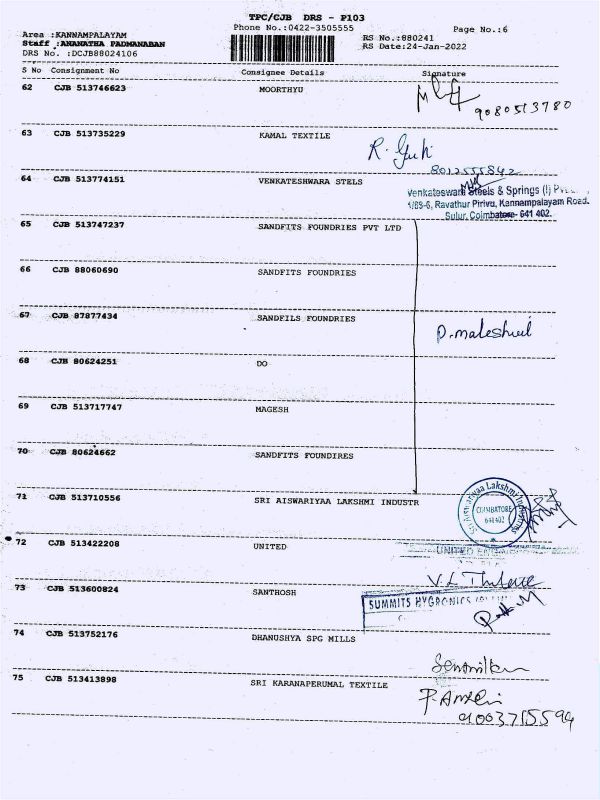 TPC/CJB DRS - P103
Phone No.:0422-3505555
Page No.:6
Area :KANNAMPALAYAM
RS No.:880241
Staff :ANANATHA PADMANABAN
RS Date:24-Jan-2022
DRS No. :DCJB88024106
S No Consignment No Consignee Details Signature
62 CJB 513746623 MOORTHYU
9080513780
63 CJB 513735229 KAMAL TEXTILE
8012555842
64 CJB 513774151 VENKATESHWARA STELS
Venkateswara Steels & Springs (I)
1/89-6, Ravathur Pirivu, Kannampalayam Road.
Sulur, Coimbatore- 641 402.
65 CJB 513747237 SANDFITS FOUNDRIES PVT LTD
66 CJB 88060690 SANDFITS FOUNDRIES
67 CJB 87877434 SANDFILS FOUNDRIES
68 CJB 80624251 DO
69 CJB 513717747 MAGESH
70 CJB 80624662 SANDFITS FOUNDIRES
71 CJB 513710556 SRI AISWARIYAA LAKSHMI INDUSTR
Sri Aiswariyaa Lakshmi Industries
COIMBATORE
641402
72 CJB 513422208 UNITED
UNITED
73 CJB 513600824 SANTHOSH
SUMMITS HYGRONICS
74 CJB 513752176 DHANUSHYA SPG MILLS
75 CJB 513413898 SRI KARANAPERUMAL TEXTILE